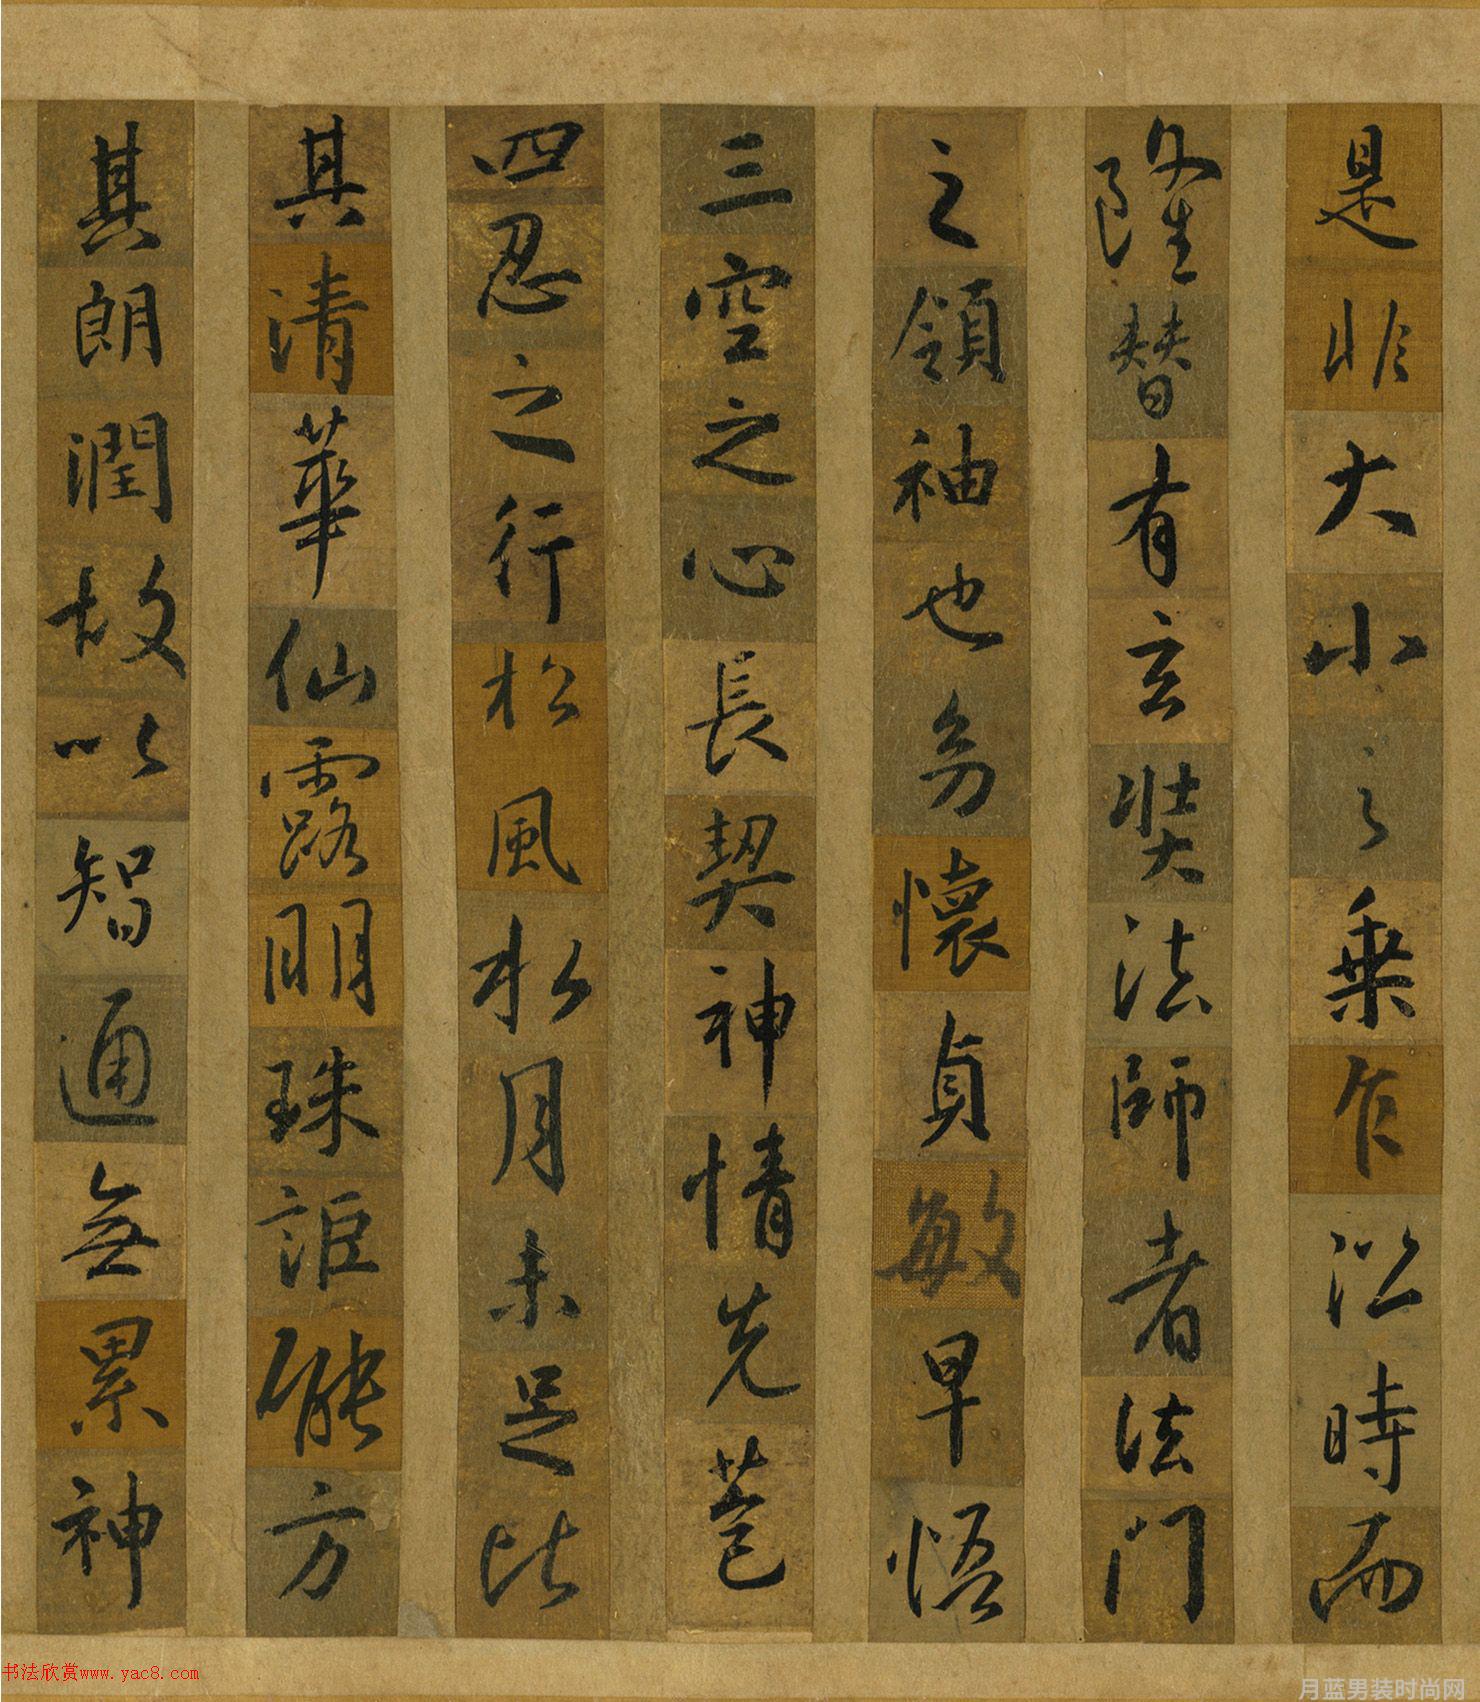 是非大小之乗乍㳂時而
隆替有玄奘法師者法門
之領袖也㓜懷貞敏早悟
三空之心長契神情先苞
四忍之行松風水月未足比
其清華仙露明珠詎能方
其朗潤故以智通無累神
书法欣赏www.yac8.com
月蓝男装时尚网